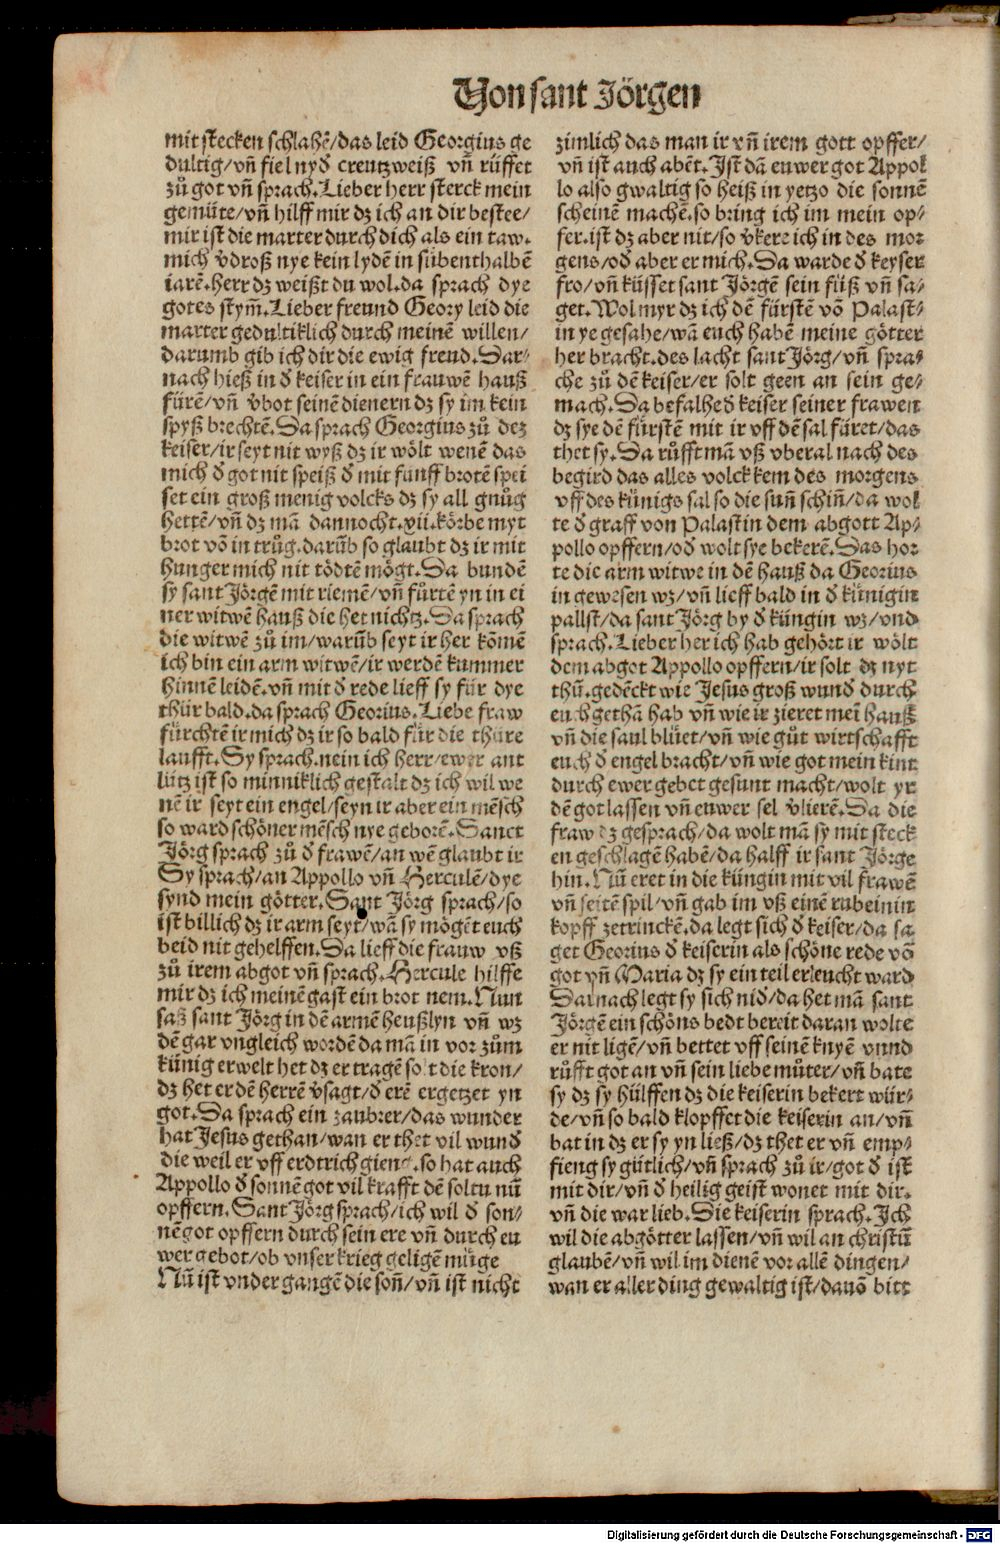 Von sant Jörgen
mit stecken schlahē/das leid Georgius ge
dultig/vñ fiel nyd creutzweiß vñ rüffet
zů got vñ sprach. Lieber herr sterck mein
gemüte/vñ hilff mir dz ich an dir bestee/
mir ist die marter durch dich als ein taw.
mich vdroß nye kein lydē in sübenthalbē
iarē. herr dz weißt du wol. da sprach dye
gotes stym̄. Lieber freund Geory leid die
marter gedultiklich durch meinē willen/
darumb gib ich dir die ewig freud. Dar⸗
nach hieß in d̕ keiser in ein frauwē hauß
fürē/vñ v̕bot seinē dienern dz sy im kein
spyß brechtē. Da sprach Georgius zů dez
keiser/ir seyt nit wyß dz ir wölt wenē das
mich d̕ got nit speiß d̕ mit fünff brotē spei
set ein groß menig volcks dz sy all gnůg
hettē/vñ dz mā dannocht.xii.körbe myt
brot vō in trůg. darūb so glaubt dz ir mit
hunger mich nit tödtē mögt. Da bundē
sy sant Jörgē mit riemē/vñ fürtē yn in ei
ner witwē hauß die het nichtz. Da sprach
die witwē zů im/warūb seyt ir her kōmē
ich bin ein arm witwē/ir werdē kummer
hinnē leidē. vñ mit d̕ rede lieff sy für dye
thür bald. da sprach Georius. Liebe fraw
fürchtē ir mich dz ir so bald für die thüre
laufft. Sy sprach. nein ich herr/ewer ant
lütz ist so minniklich gestalt dz ich wil we
nē ir seyt ein engel/seyn ir aber ein mēsch
so ward schöner mēsch nye geborē. Sanct
Jörg sprach zů d̕ frawē/an wē glaubt ir
Sy sprach/an Appollo vñ Herculē/dye
synd mein götter. Sant Jörg sprach/so
ist billich dz ir arm seyt/wā sy mögēt euch
beid nit gehelffen. Da lieff die frauw vß
zů irem abgot vñ sprach. Hercule hilffe
mir dz ich meinē gast ein brot nem. Nun
saß sant Jörg in dē armē heußlyn vñ wz
dē gar vngleich wordē da mā in vor zům
künig erwelt het dz er tragē solt die kron/
dz het er dē herrē v̕sagt/d̕ erē ergetzet yn
got. Da sprach ein zaubrer/das wunder
hat Jesus gethan/wan er thet vil wund̕
die weil er vff erdtrich gieng. so hat auch
Appollo d̕ sonnē got vil krafft dē soltu nū
opffern. Sant Jörg sprach/ich wil d̕ son⸗
nē got opffern durch sein ere vñ durch eu
wer gebot/ob vnser krieg geligē müge
Nū ist vnder gangē die soñ/vñ ist nicht
zimlich das man ir vñ irem gott opffer/
vñ ist auch abēt. Ist dā euwer got Appol
lo also gwaltig so heiß in yetzo die sonnē
scheinē machē. so bring ich im mein op⸗
fer. ist dz aber nit/so v̕kere ich in des mor
gens/od̕ aber er mich. Da warde d̕ keyser
fro/vñ küsset sant Jörgē sein füß vñ sa⸗
get. Wol myr dz ich dē fürstē vō Palast⸗
in ye gesahe/wā euch habē meine götter
her bracht. des lacht sant Jörg/vñ spra⸗
che zů dē keiser/er solt geen an sein ge⸗
mach. Da befalhe d̕ keiser seiner frawen
dz sye dē fürstē mit ir vff dē sal füret/das
thet sy. Da rüfft mā vß vberal nach des
begird das alles volck kem des morgens
vff des künigs sal so die suñ schiñ/da wol
te d̕ graff von Palastin dem abgott Ap⸗
pollo opffern/od̕ wolt sye bekerē. Das hor
te die arm witwe in dē hauß da Georius
in gewesen wz/vñ lieff bald in d̕ künigin
pallst/da sant Jörg by d̕ küngin wz/vnd
sprach. Lieber her ich hab gehört ir wölt
dem abgot Appollo opffern/ir solt dz nyt
thū. gedēckt wie Jesus groß wund̕ durch
euch gethā hab vñ wie ir zieret mei hauß
vñ die saul blüet/vñ wie gůt wirtschafft
euch d̕ engel bracht/vñ wie got mein kint
durch ewer gebet gesunt macht/wolt yr
dē got lassen vñ euwer sel v̕lierē. Da die
fraw dz gesprach/da wolt mā sy mit steck
en geschlagē habē/da halff ir sant Jörge
hin. Nū eret in die küngin mit vil frawē
vñ seitē spil/vñ gab im vß einē rubeinin
kopff zetrinckē. da legt sich d̕ keiser/da sa
get Georius d̕ keiserin als schöne rede vō
got vñ Maria dz sy ein teil erleucht ward
Darnach legt sy sich nid̕/da het mā sant
Jörgē ein schöns bedt bereit daran wolte
er nit ligē/vñ bettet vff seinē knyē vnnd
rüfft got an vñ sein liebe můter/vñ bate
sy dz sy hülffen dz die keiserin bekert wür⸗
de/vñ so bald klopffet die keiserin an/vñ
bat in dz er sy yn ließ/dz thet er vñ emp⸗
fieng sy gütlich/vñ sprach zů ir/got d̕ ist
mit dir/vñ d̕ heilig geist wonet mit dir.
vñ die war lieb. Die keiserin sprach. Ich
wil die abgötter lassen/vñ wil an christū
glaubē/vñ wil im dienē vor allē dingen/
wan er aller ding gewaltig ist/dauō bitt
Digitalisierung gefördert durch die Deutsche Forschungsgemeinschaft - DFG